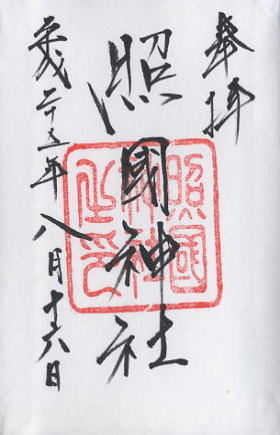 奉拝
照國神社
平成二十五年八月十六日
照國神社之印